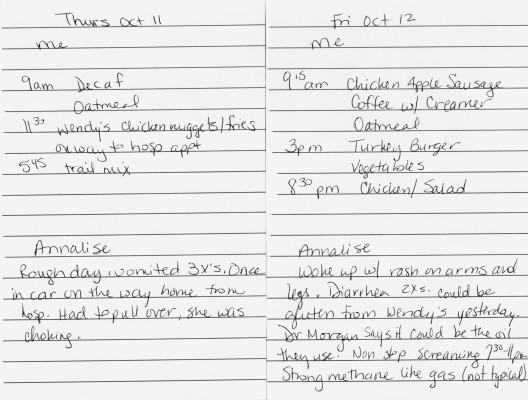 Thurs Oct 11
me
9am Decaf
Oatmeal
1130 Wendy's Chicken nuggets/fries
on way to hosp appt
545 trail mix
Annalise
Rough day. vomited 3x's. Once
in car on the way home from
hosp. Had to pull over, she was
choking.
Fri Oct 12
me
915 am Chicken Apple Sausage
Coffee w/ Creamer
Oatmeal
3pm Turkey Burger
Vegetables
830 pm Chicken/Salad
Annalise
Woke up w/ rash on arms and
legs. Diarrhea 2xs. could be
gluten from Wendy's yesterday.
Dr Morgan says it could be the oil
they use. Non stop screaming 730-11pm
Strong methane like gas (not typical)